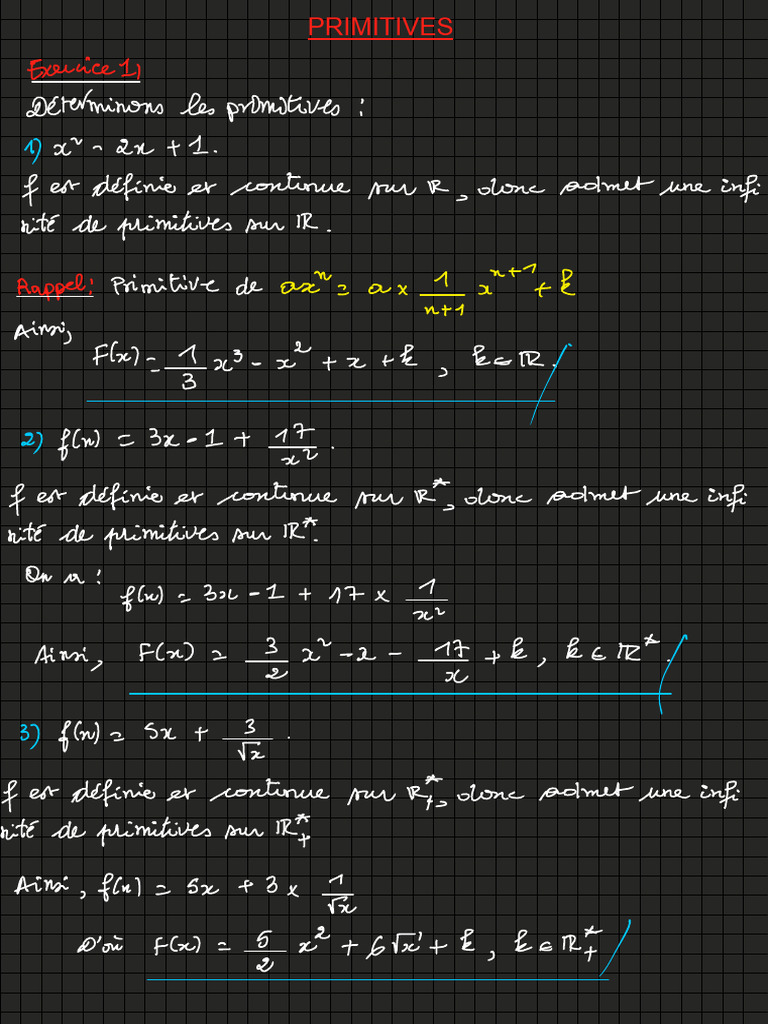 PRIMITIVES
Exercice 1,
Déterminons les primitives :
1) x² - 2x + 1.
f est définie et continue sur ℝ, donc admet une infi
nité de primitives sur ℝ.
Rappel: Primitive de axⁿ = a × 1/(n+1) xⁿ⁺¹ + k
Ainsi,
F(x) = 1/3 x³ - x² + x + k , k ∈ ℝ.
2) f(x) = 3x - 1 + 17/x².
f est définie et continue sur ℝ*, donc admet une infi
nité de primitives sur ℝ*.
On a : f(x) = 3x - 1 + 17 × 1/x²
Ainsi, F(x) = 3/2 x² - x - 17/x + k , k ∈ ℝ*.
3) f(x) = 5x + 3/√x .
f est définie et continue sur ℝ*₊, donc admet une infi
nité de primitives sur ℝ*₊
Ainsi, f(x) = 5x + 3 × 1/√x
D'où F(x) = 5/2 x² + 6√x + k , k ∈ ℝ*₊